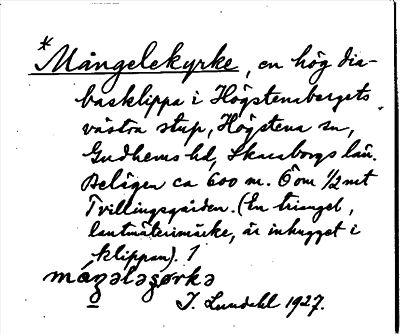 * Mångelekyrke, en hög dia-
basklippa i Högstenabergets
västra stup, Högstena sn,
Gudhems hd, Skaraborgs län.
Belägen ca 600 m. Ö om ½ mt
Tvillingsgården. (En triangel,
lantmäterimärke, är inhugget i
klippan). 1
I. Lundahl 1927.